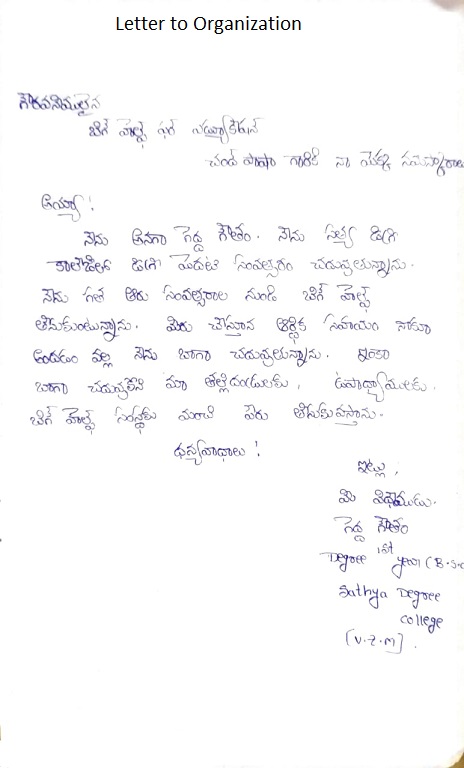 Letter to Organization
గౌరవనీయులైన
బిగ్ హెల్ప్ ఫర్ ఎడ్యుకేషన్
చాంద్ పాషా గారికి నా యొక్క నమస్కారాలు
అయ్యా !
నేను అనగా గెద్ద గౌతం. నేను సత్య డిగ్రీ
కాలేజీలో డిగ్రీ మొదటి సంవత్సరం చదువుతున్నాను.
నేను గత ఆరు సంవత్సరాల నుండి బిగ్ హెల్ప్
తీసుకుంటున్నాను. మీరు చేస్తూన ఆర్థిక సహాయం నాకూ
అందడం వల్ల నేను బాగా చదువుతున్నాను. ఇంకా
బాగా చదువుకొని మా తల్లిదండ్రులకు, ఉపాధ్యాయులకు.
బిగ్ హెల్ప్ సంస్థకు మంచి పేరు తీసుకువస్తాను.
ధన్యవాదాలు !
ఇట్లు,
మీ విధేయుడు.
గెద్ద గౌతం
Degree 1st year (B.S.C
Sathya Degree
College
(V.Z.M).